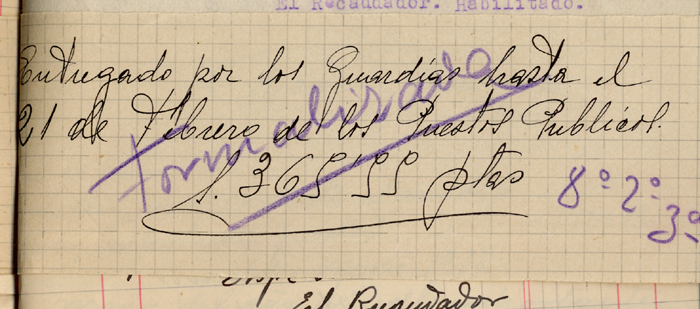 El Recaudador. Habilitado.
Entregado por los Guardias hasta el
21 de Febrero de los Puestos Publicos.
S. 365'55 ptas
Formalizado
8º 2º
3º
El Recaudador